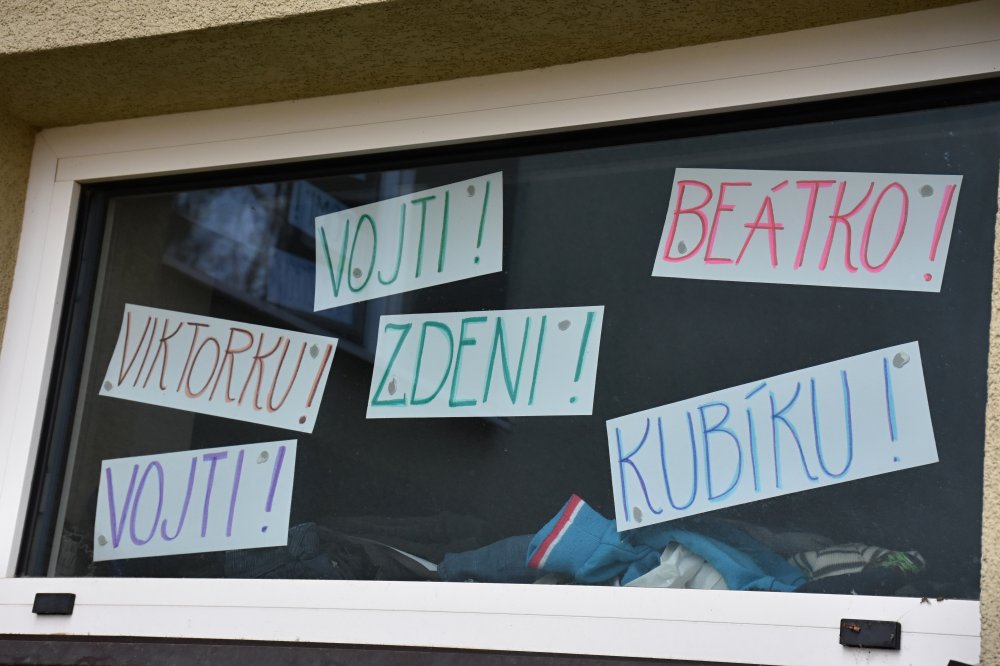 VOJTI!
BEÁTKO!
VIKTORKU!
ZDENI!
KUBÍKU!
VOJTI!